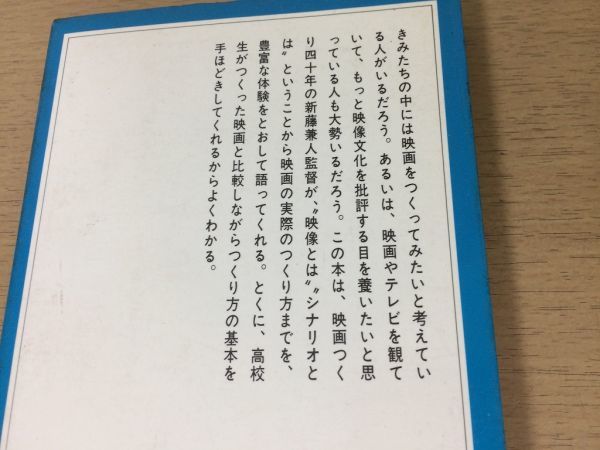 きみたちの中には映画をつくってみたいと考えてい
る人がいるだろう。あるいは、映画やテレビを観て
いて、もっと映像文化を批評する目を養いたいと思
っている人も大勢いるだろう。この本は、映画つく
り四十年の新藤兼人監督が、〝映像とは〟〝シナリオと
は〟ということから映画の実際のつくり方までを、
豊富な体験をとおして語ってくれる。とくに、高校
生がつくった映画と比較しながらつくり方の基本を
手ほどきしてくれるからよくわかる。